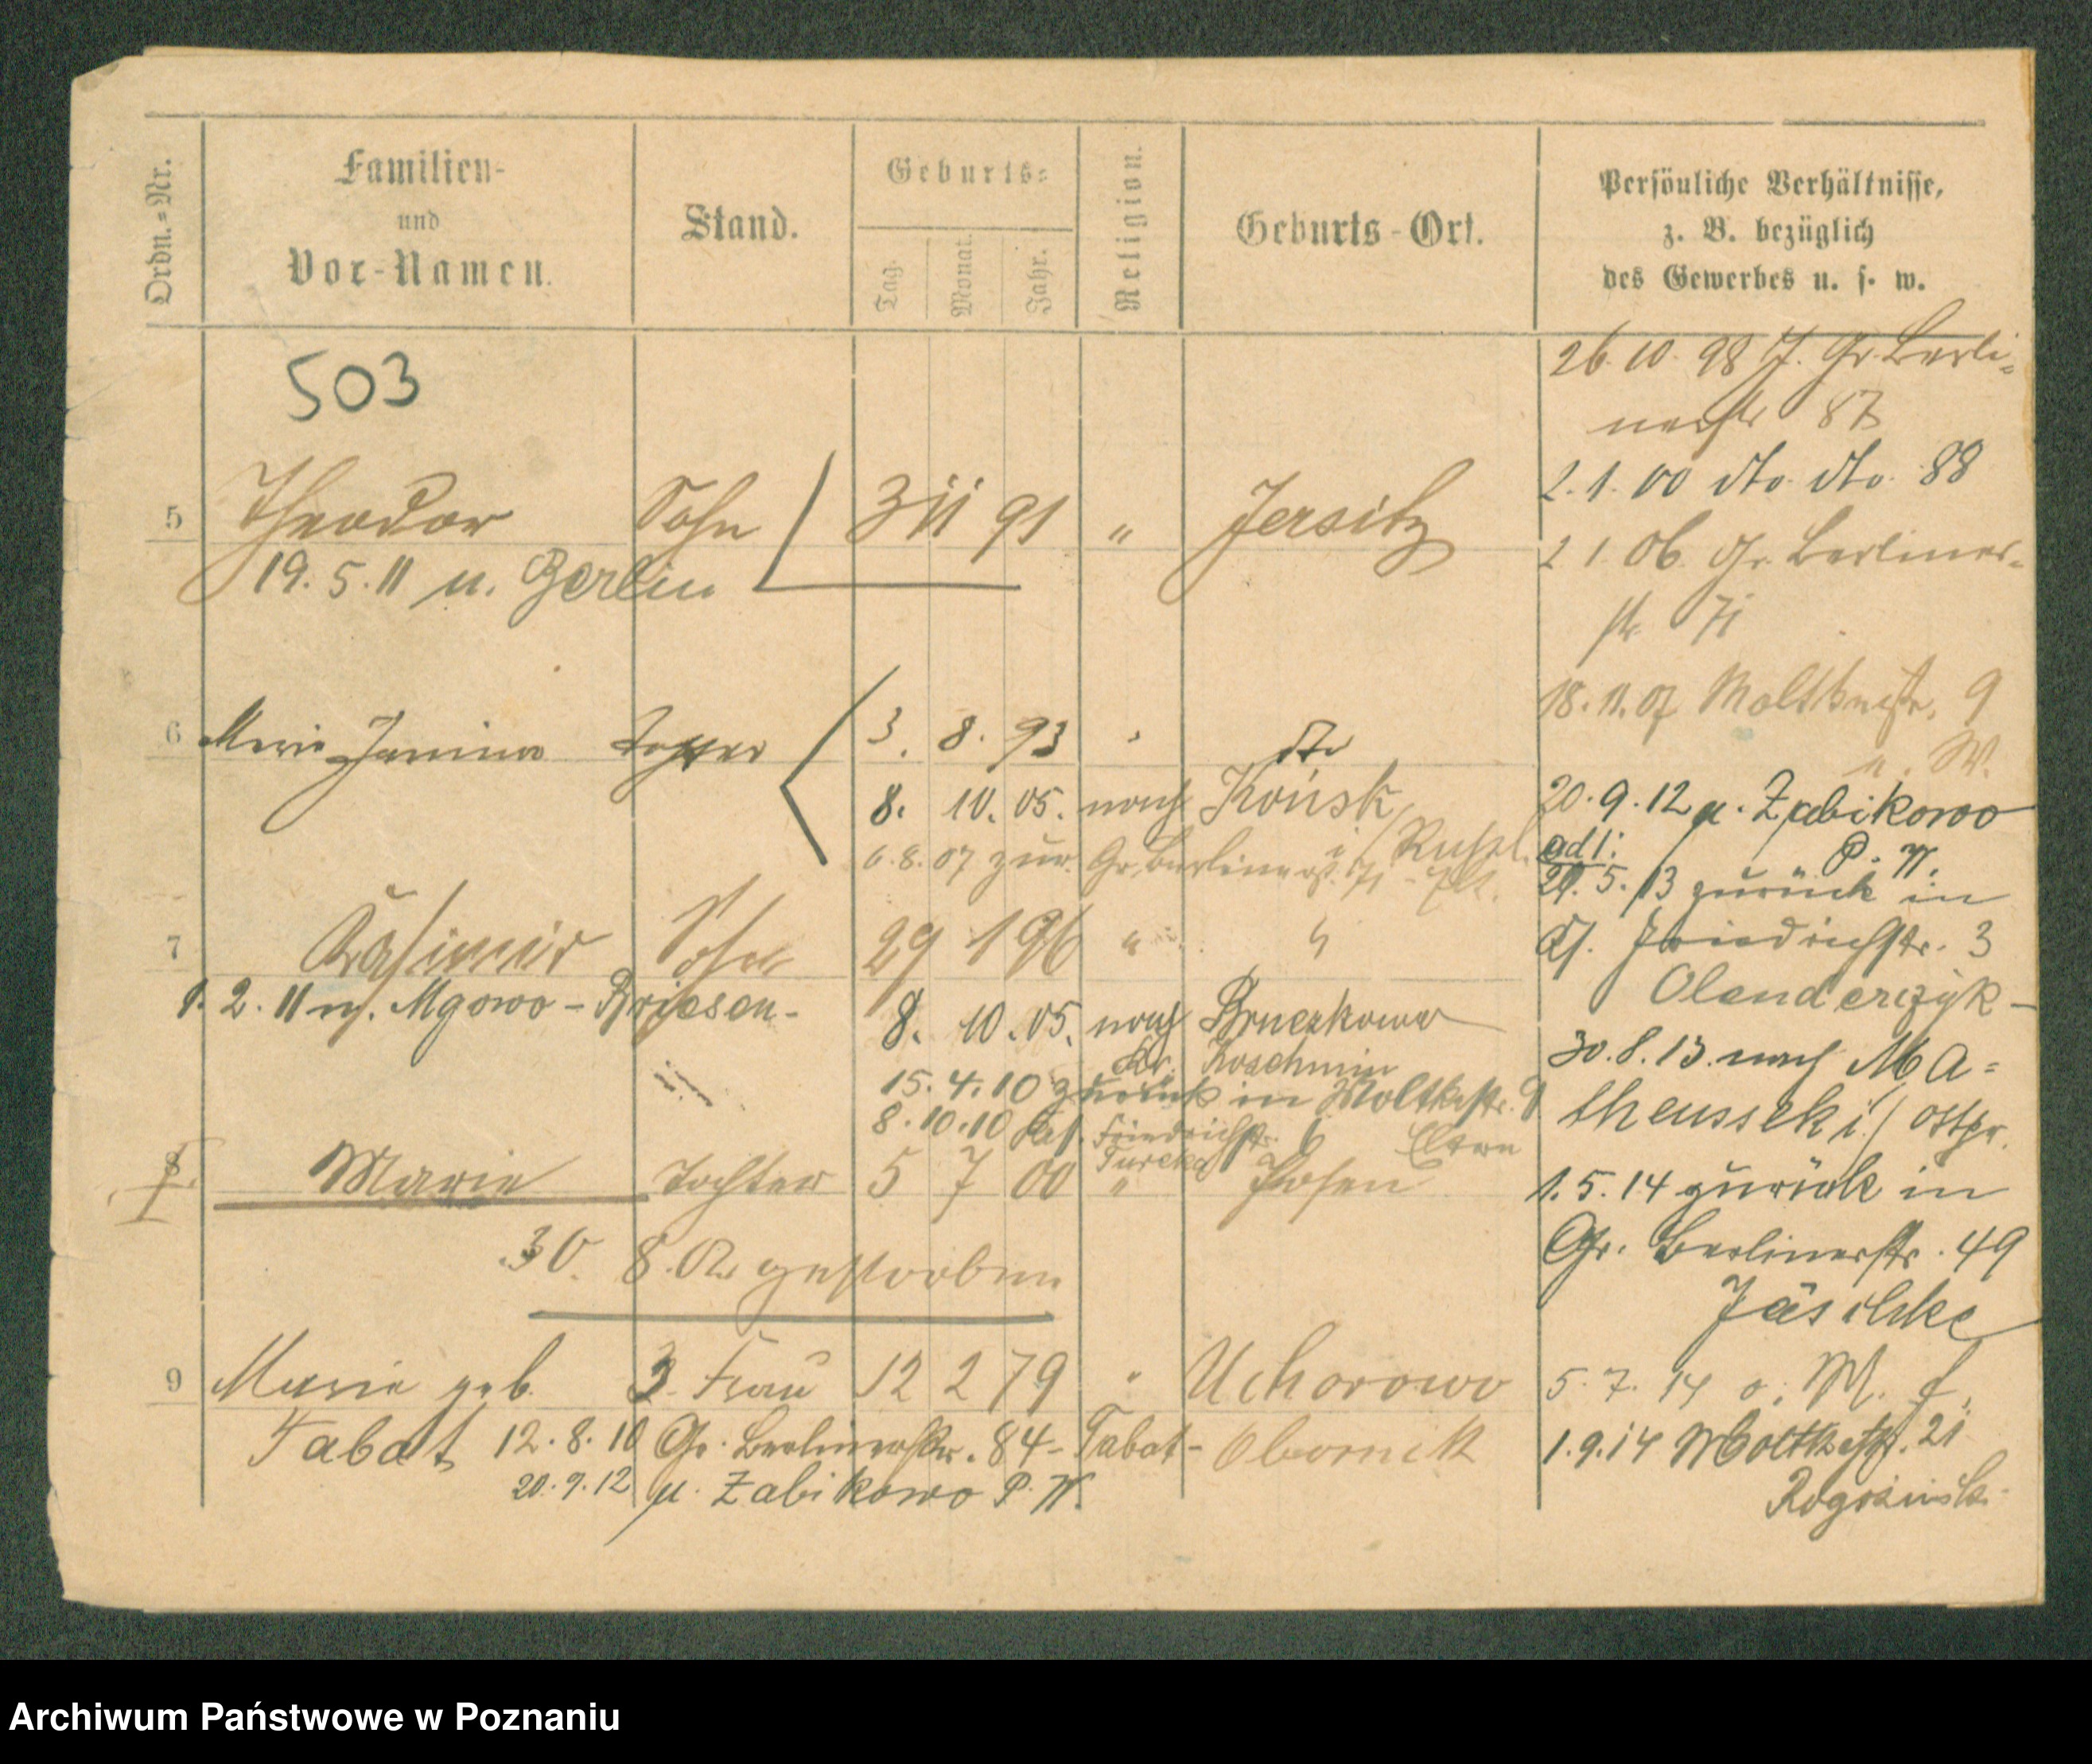 Ordn.=Nr.
Familien-
und
Vor-Namen.
Stand.
Geburts=
Tag.
Monat.
Jahr.
Religion.
Geburts-Ort.
Persönliche Verhältnisse,
z. B. bezüglich
des Gewerbes u. s. w.
503
5 Theodor Sohn 3 11 91 " Jersitz
19. 5. 11 n. Berlin
6 Marie Janina Tochter 3. 8. 93 " dto
8. 10. 05. nach Końsk
6. 8. 07 zur. Gr. Berlinerstr. 71
i/Russl.
7 Kasimir Sohn 29 1 96 " "
1. 2. 11 n. Mgowo - Briesen -
8. 10. 05. nach Bruczkowo
Kr. Koschmin
15. 4. 10 zurück in Moltkestr. 9
8. 10. 10 Friedrichstr. Eltern
8. Marie Tochter 5 7 00 " Posen
30. 8. gestorben
9 Marie geb. 3. Frau 12 2 79 " Uchorowo
Tabat 12. 8. 10 Gr. Berlinerstr. 84 - Tabat - Obornik
20. 9. 12 n. Zabikowo P. W.
26. 10. 98 J. Gr. Berli=
nerstr 87
2. 1. 00 dto dto. 88
2 1 06. Gr. Berliner=
str. 71
18. 11. 07 Moltkestr. 9
n. W.
20. 9. 12 n. Zabikowo
ad 1: P. W.
29. 5. 13 zurück in
Friedrichstr. 3
Olenderczyk -
30. 8. 13. nach Ma=
theusseki / Ostpr.
1. 5. 14 zurück in
Gr. Berlinerstr. 49
Jäschke
5. 7. 14 o. M. f.
1. 9. 14 Moltkestr. 21
Rogozinsk.
Archiwum Państwowe w Poznaniu